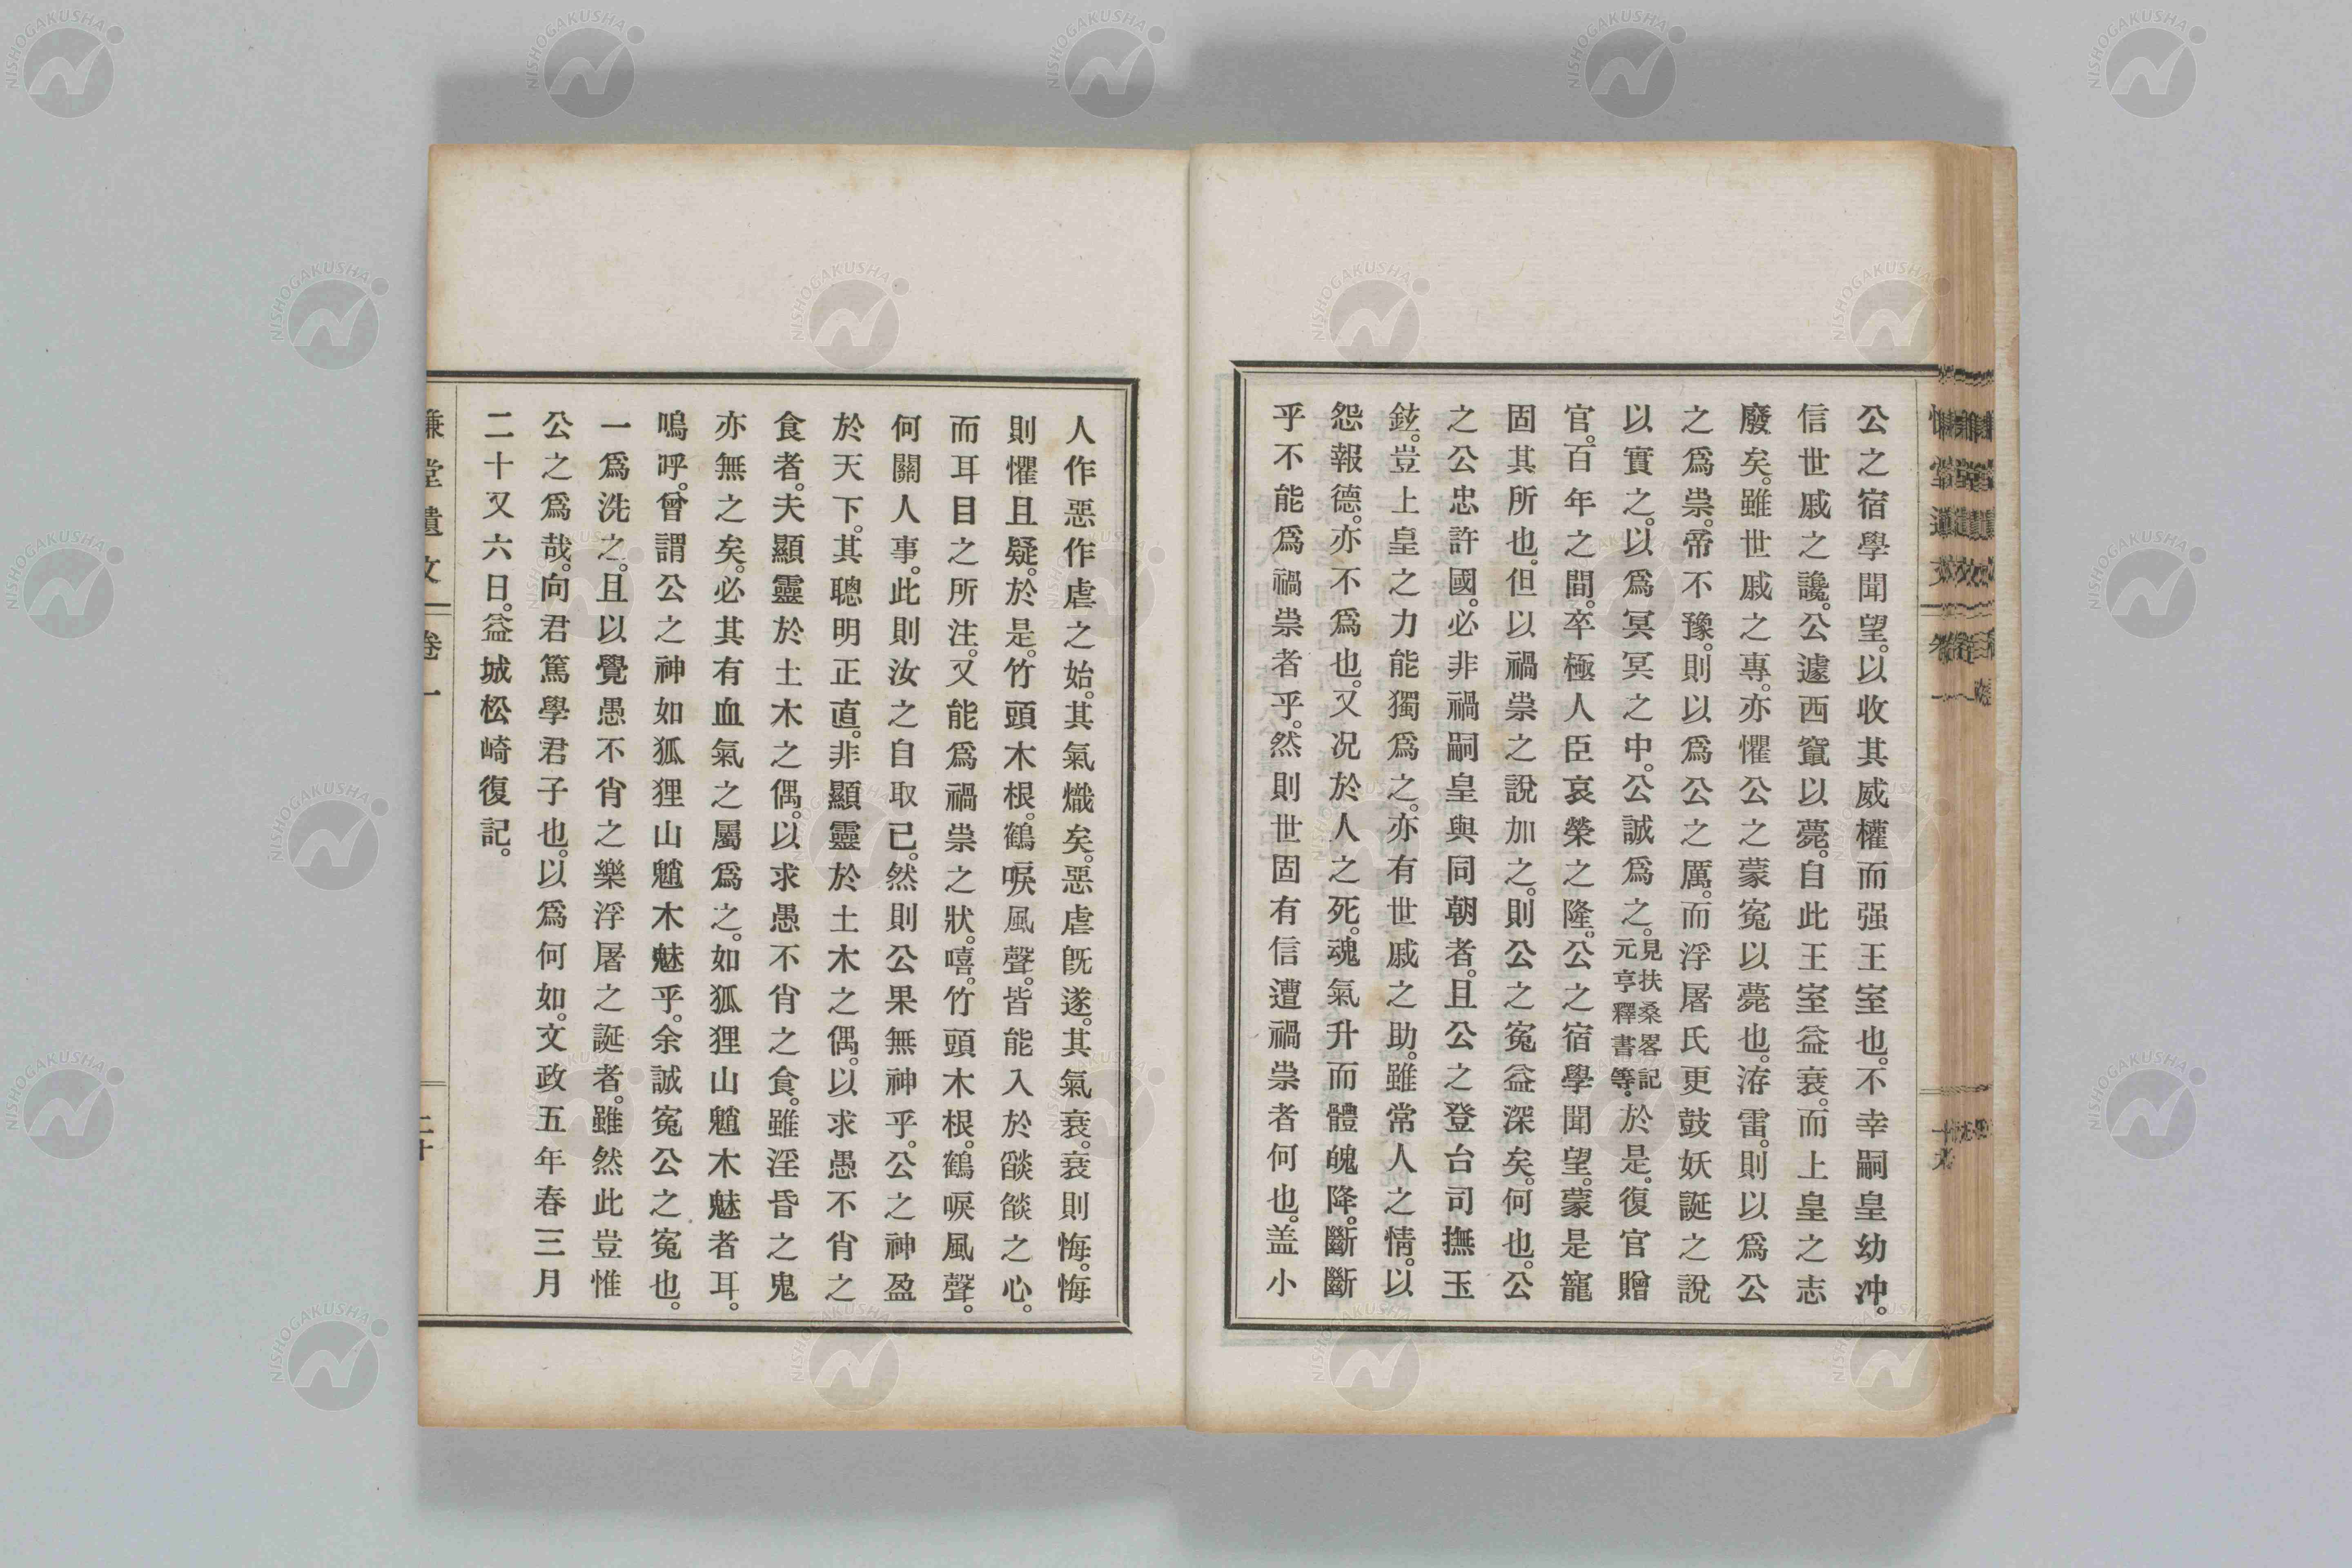 公之宿學聞望。以收其威權而强王室也。不幸嗣皇幼冲。
信世戚之讒。公遽西竄以薨。自此王室益衰。而上皇之志
廢矣。雖世戚之專。亦懼公之蒙寃以薨也。洊雷。則以爲公
之爲祟。帝不豫。則以爲公之厲。而浮屠氏更鼓妖誕之說
以實之。以爲冥冥之中。公誠爲之。見扶桑畧記元亨釋書等。於是。復官贈
官。百年之間。卒極人臣哀榮之隆。公之宿學聞望。蒙是寵
固其所也。但以禍祟之說加之。則公之寃益深矣。何也。公
之公忠許國。必非禍嗣皇與同朝者。且公之登台司撫玉
鉉。豈上皇之力能獨爲之。亦有世戚之助。雖常人之情。以
怨報德。亦不爲也。又況於人之死。魂氣升而體魄降。斷斷
乎不能爲禍祟者乎。然則世固有信遭禍祟者何也。盖小
人作惡作虐之始。其氣熾矣。惡虐旣遂。其氣衰。衰則悔。悔
則懼且疑。於是。竹頭木根。鶴唳風聲。皆能入於燄燄之心。
而耳目之所注。又能爲禍祟之狀。嘻。竹頭木根。鶴唳風聲。
何關人事。此則汝之自取已。然則公果無神乎。公之神盈
於天下。其聰明正直。非顯靈於土木之偶。以求愚不肖之
食者。夫顯靈於土木之偶。以求愚不肖之食。雖淫昏之鬼
亦無之矣。必其有血氣之屬爲之。如狐狸山魈木魅者耳。
嗚呼。曾謂公之神如狐狸山魈木魅乎。余誠寃公之寃也。
一爲洗之。且以覺愚不肖之樂浮屠之誕者。雖然此豈惟
公之爲哉。向君篤學君子也。以爲何如。文政五年春三月
二十又六日。益城松崎復記。
慊堂遺文 卷一 二十